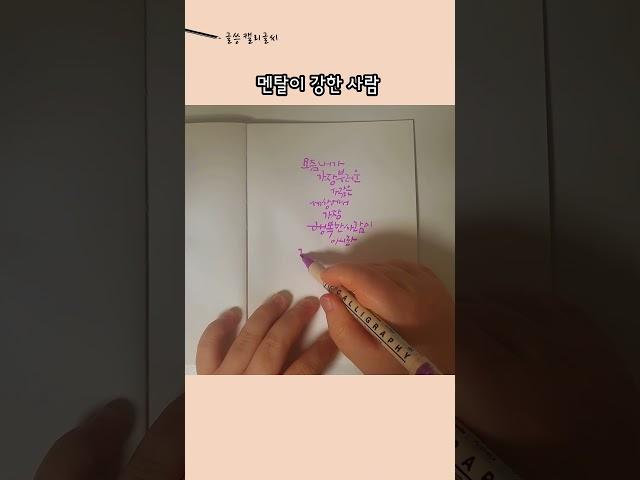 글쓩캘리글씨
멘탈이 강한 사람
요즘 내가
가장 부러운
사람은
세상에서
가장
행복한 사람이
아니라
CALLIGRAPHY